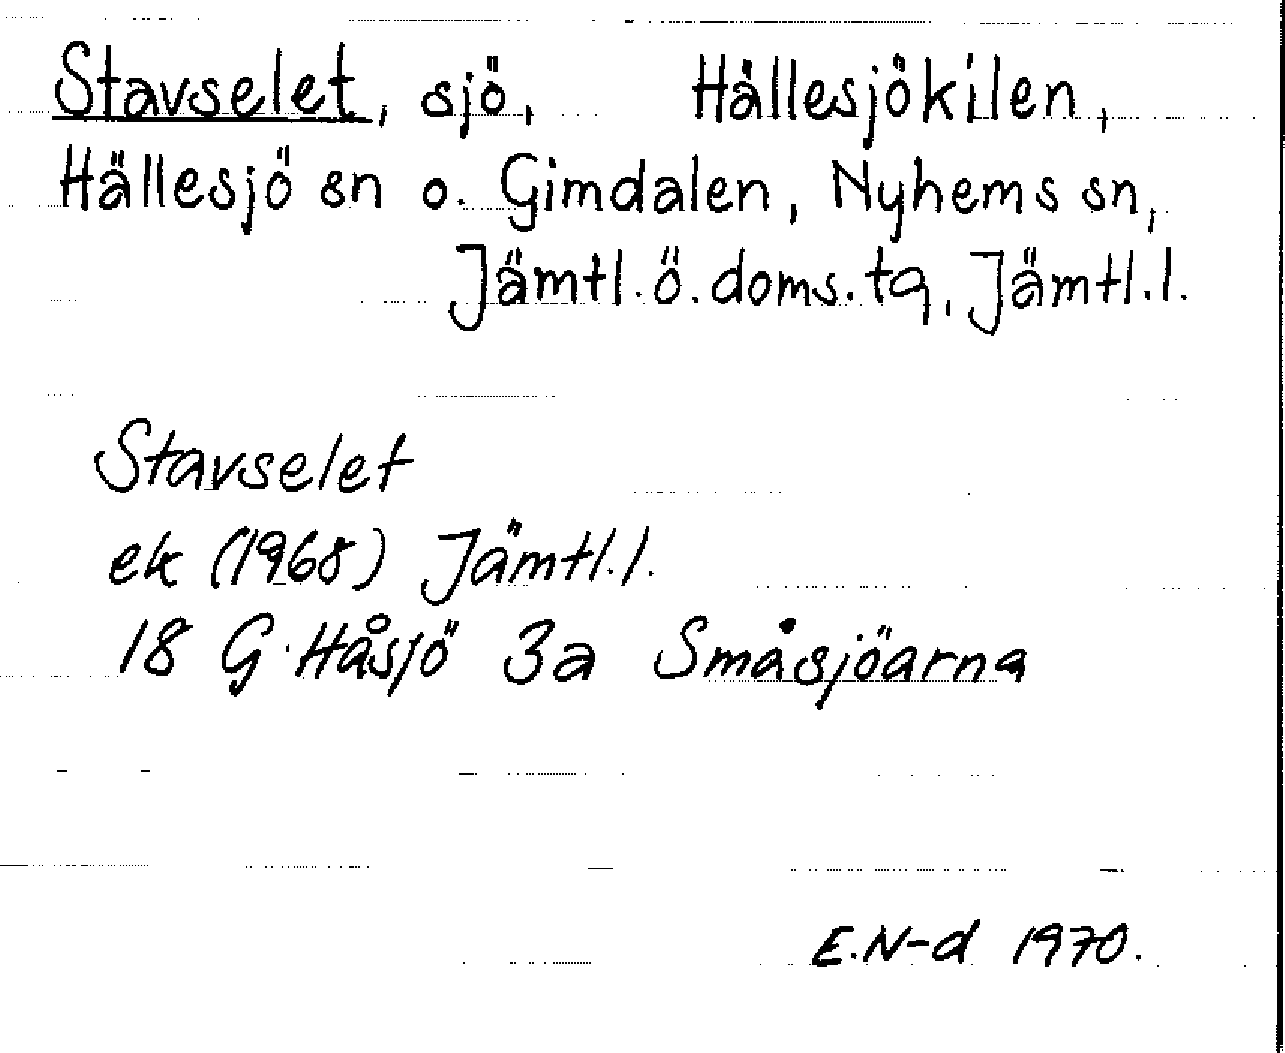 Stavselet, sjö, Hällesjökilen,
Hällesjö sn o. Gimdalen, Nyhems sn,
Jämtl.ö.doms.tg, Jämtl.l.
Stavselet
ek (1968) Jämtl.l.
18 G Håsjö 3a Småsjöarna
E.N-d 1970.